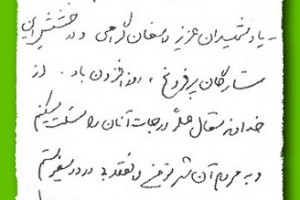 - یاد شهیدان عزیز دامغان گرامی و درخشش این
ستارگان پرفروغ، روزافزون باد. از
خداوند متعال علو درجات آنان را مسئلت میکنم
و به مردم آن شهر و تفقد به درود میفرستم